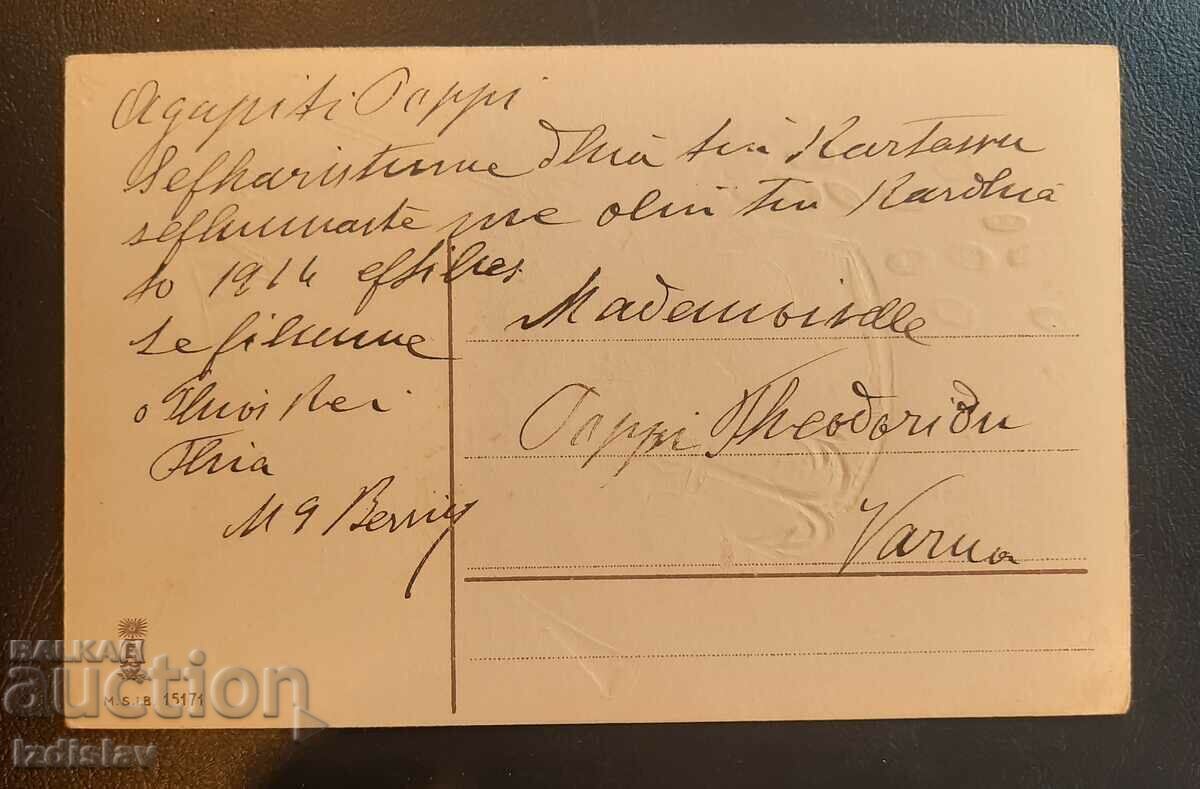 Agapiti Poppi
Sefharistume dhia tin Kartasu
sefhumaste me olin tin Kardhia
to 1914 eftihes
se filume
o Thios Kei
Thia
M G
Mademoiselle
Poppi Theodoridu
Varna
M.S.i.B. 15171
BALKAN
auction
izdislav